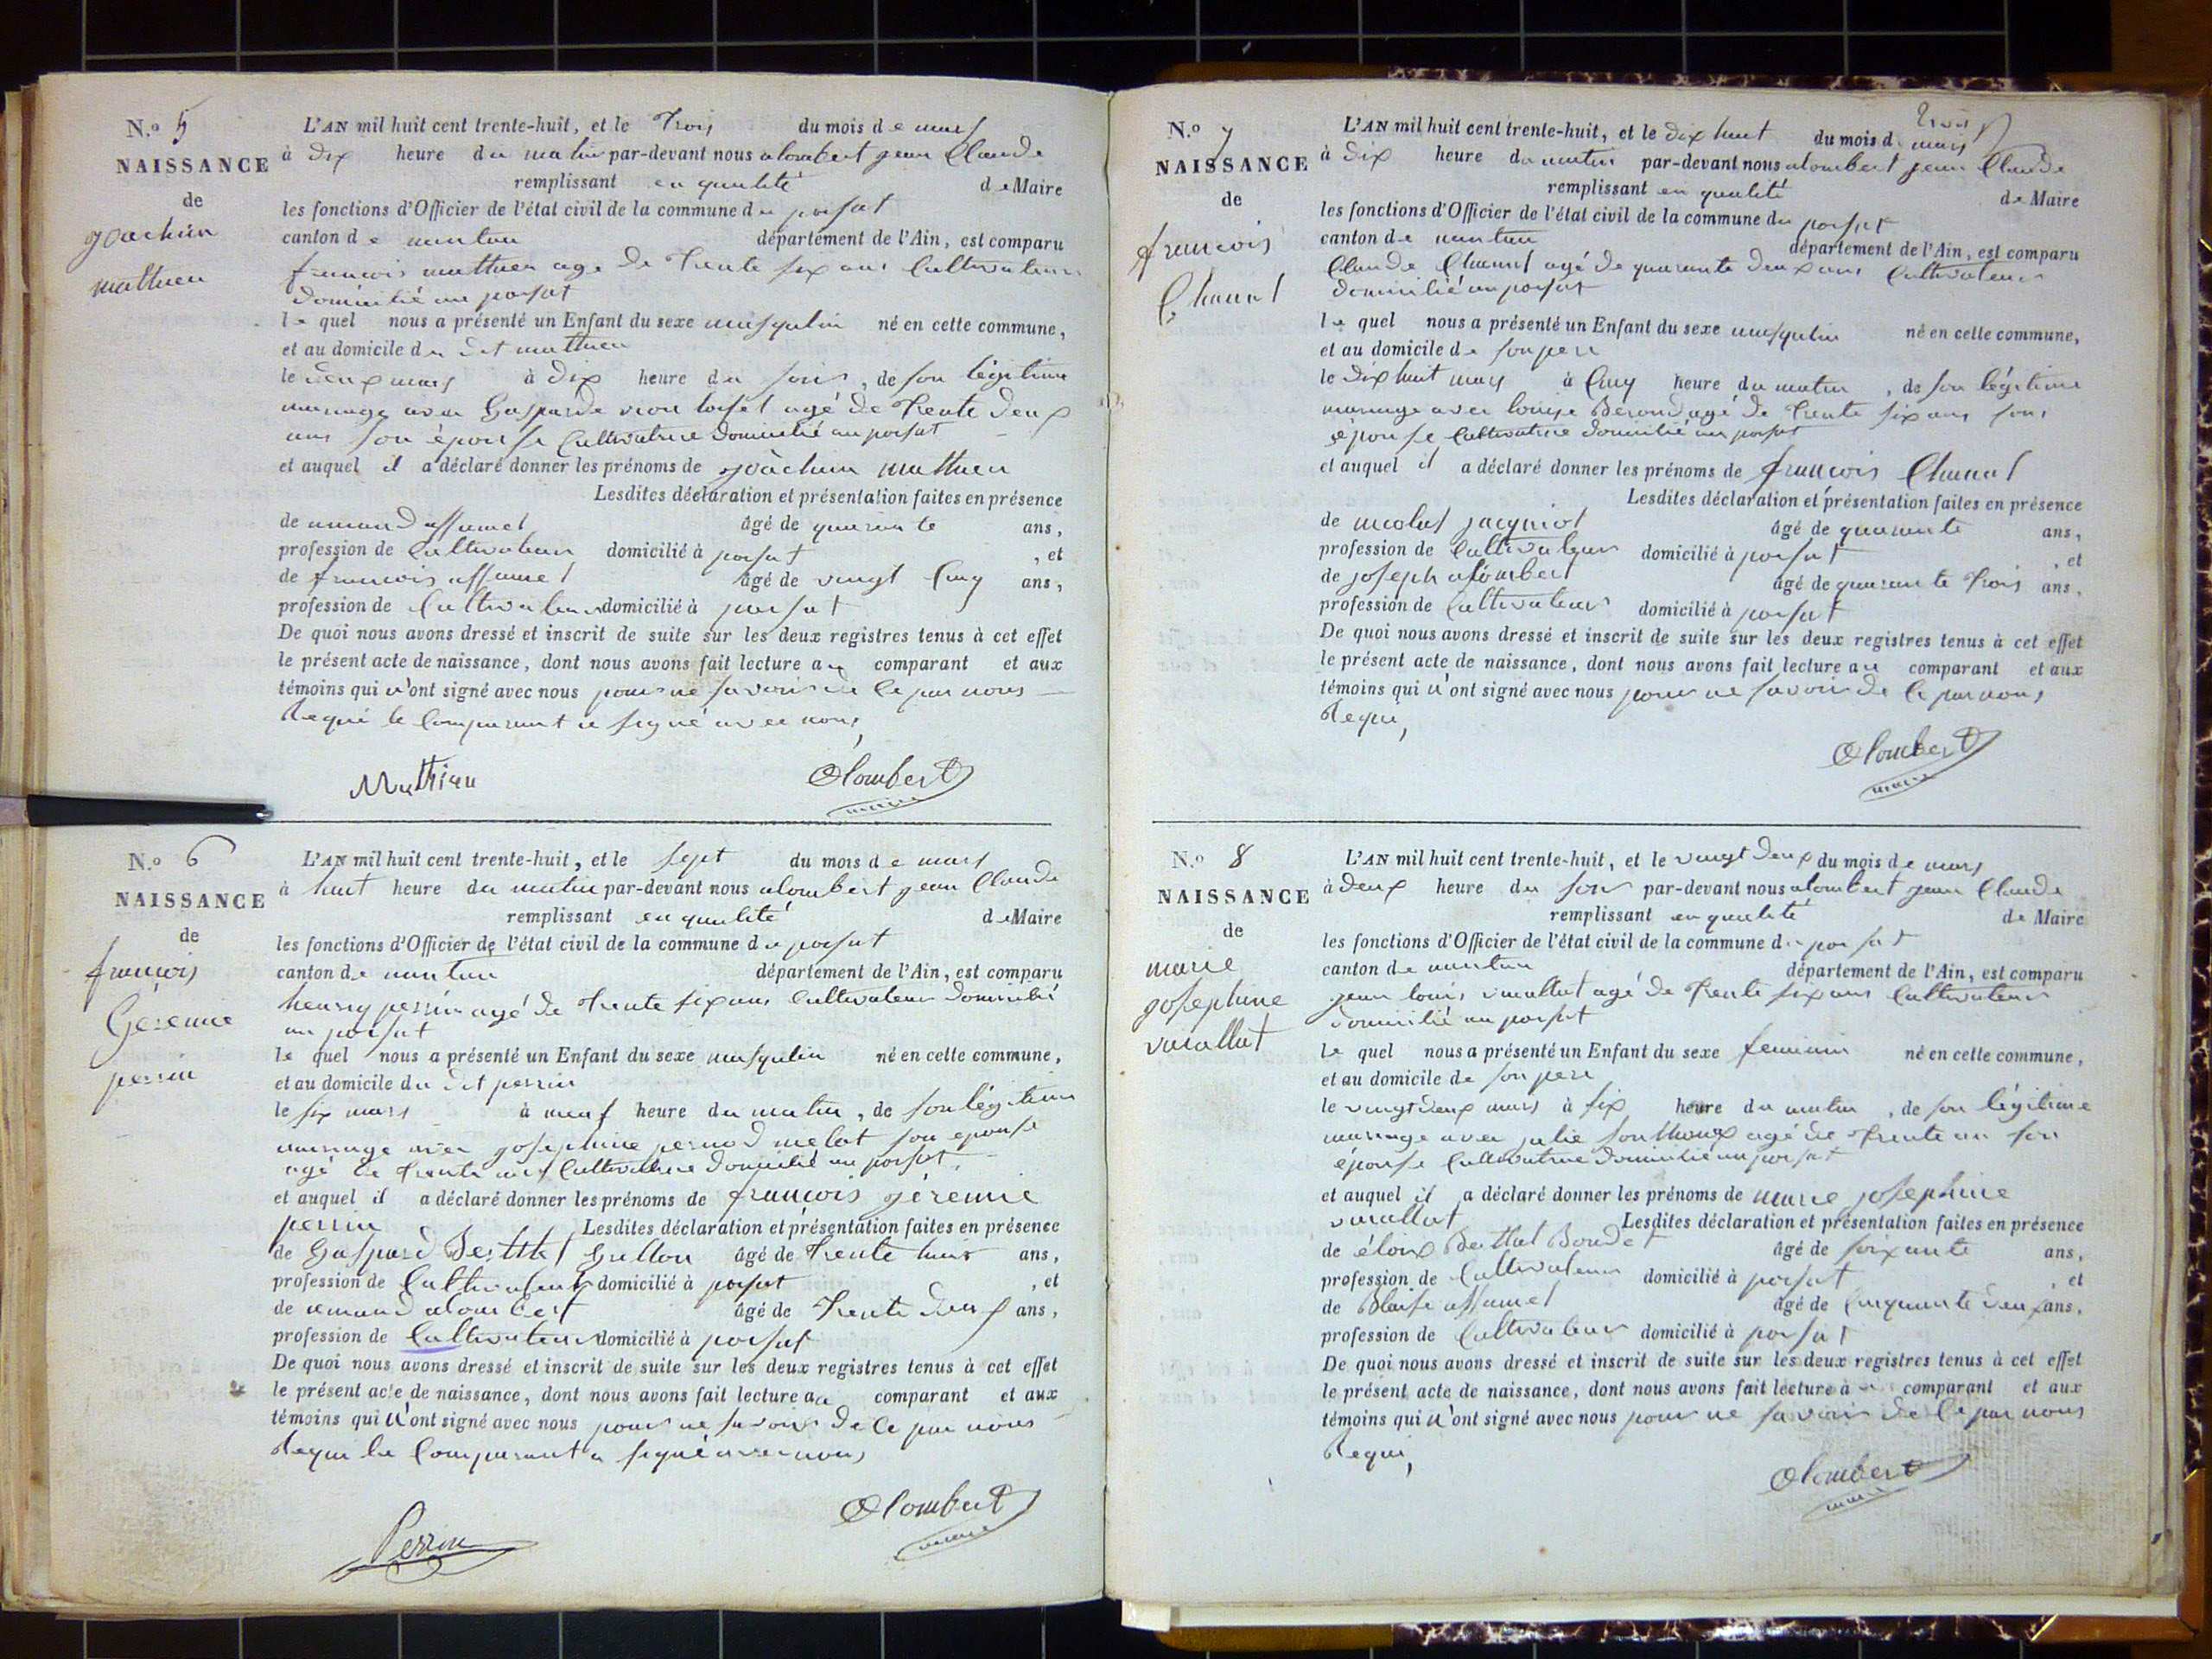 N.o 5
NAISSANCE
de
joachim
mathieu
L'AN mil huit cent trente-huit, et le trois du mois de mars
à dix heure du matin par-devant nous alombert jean Claude
remplissant en qualité de Maire
les fonctions d'Officier de l'état civil de la commune du
canton de nantua département de l'Ain, est comparu
francois mathieu age de trente six ans Cultivateur
domicilié au
le quel nous a présenté un Enfant du sexe musqulin né en cette commune,
et au domicile du dit mathieu
le deux mars à dix heure du soir, de son légitime
mariage avec Gasparde agé de trente deux
ans son épouse Cultivatrice domicilié au
et auquel il a déclaré donner les prénoms de joachim mathieu
Lesdites déclaration et présentation faites en présence
de amand âgé de quarante ans,
profession de Cultivateur domicilié à , et
de francois âgé de vingt Cinq ans,
profession de Cultivateur domicilié à
De quoi nous avons dressé et inscrit de suite sur les deux registres tenus à cet effet
le présent acte de naissance, dont nous avons fait lecture au comparant et aux
témoins qui n'ont signé avec nous pour ne savoir de Ce par nous
Requi le Comparant a signé avec nous
Mathieu
Alombert
maire
N.o 6
NAISSANCE
de
francois
Géremie
perrin
L'AN mil huit cent trente-huit, et le sept du mois de mars
à huit heure du matin par-devant nous alombert jean Claude
remplissant en qualité de Maire
les fonctions d'Officier de l'état civil de la commune du
canton de nantua département de l'Ain, est comparu
henry perrin agé de trente six ans Cultivateur domicilié
au
le quel nous a présenté un Enfant du sexe musqulin né en cette commune,
et au domicile du dit perrin
le six mars à neuf heure du matin, de son légitime
mariage avec josephine pernod melat son epouse
agé de trente ans Cultivatrice domicilié au
et auquel il a déclaré donner les prénoms de francois géremie
perrin Lesdites déclaration et présentation faites en présence
de Gaspard âgé de trente huit ans,
profession de Cultivateur domicilié à , et
de amand alombert âgé de trente deux ans,
profession de Cultivateur domicilié à
De quoi nous avons dressé et inscrit de suite sur les deux registres tenus à cet effet
le présent acte de naissance, dont nous avons fait lecture au comparant et aux
témoins qui n'ont signé avec nous pour ne savoir de Ce par nous
Requi le Comparant a signé avec nous
Perrin
Alombert
maire
N.o 7
NAISSANCE
de
francois
Chanal
L'AN mil huit cent trente-huit, et le dix huit du mois de mars
à dix heure du matin par-devant nous alombert jean Claude
remplissant en qualité de Maire
les fonctions d'Officier de l'état civil de la commune du
canton de nantua département de l'Ain, est comparu
Claude Chanal agé de quarante deux ans Cultivateur
domicilié au
le quel nous a présenté un Enfant du sexe musqulin né en cette commune,
et au domicile de son pere
le dix huit mars à Cinq heure du matin, de son légitime
mariage avec louise agé de trente six ans son
épouse Cultivatrice domicilié au
et auquel il a déclaré donner les prénoms de francois Chanal
Lesdites déclaration et présentation faites en présence
de nicolas jacquiot âgé de quarante ans,
profession de Cultivateur domicilié à , et
de joseph alombert âgé de quarante trois ans,
profession de Cultivateur domicilié à
De quoi nous avons dressé et inscrit de suite sur les deux registres tenus à cet effet
le présent acte de naissance, dont nous avons fait lecture au comparant et aux
témoins qui n'ont signé avec nous pour ne savoir de Ce par nous
Requi,
Alombert
maire
N.o 8
NAISSANCE
de
marie
josephine
L'AN mil huit cent trente-huit, et le vingt deux du mois de mars
à deux heure du soir par-devant nous alombert jean Claude
remplissant en qualité de Maire
les fonctions d'Officier de l'état civil de la commune du
canton de nantua département de l'Ain, est comparu
jean louis agé de trente six ans Cultivateur
domicilié au
le quel nous a présenté un Enfant du sexe feminin né en cette commune,
et au domicile de son pere
le vingt deux mars à six heure du matin, de son légitime
mariage avec julie agé de trente un son
épouse Cultivatrice domicilié au
et auquel il a déclaré donner les prénoms de marie josephine
Lesdites déclaration et présentation faites en présence
de éloix âgé de soixante ans,
profession de Cultivateur domicilié à , et
de Blaise âgé de Cinquante deux ans,
profession de Cultivateur domicilié à
De quoi nous avons dressé et inscrit de suite sur les deux registres tenus à cet effet
le présent acte de naissance, dont nous avons fait lecture à comparant et aux
témoins qui n'ont signé avec nous pour ne savoir de Ce par nous
Requi,
Alombert
maire